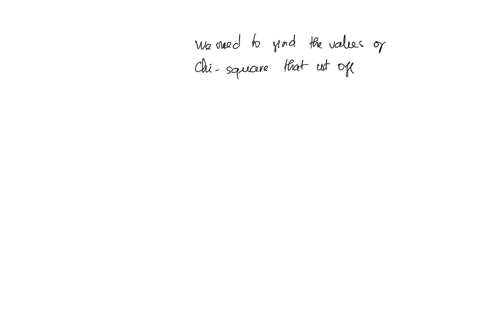 We need to find the values of
Chi-square that cut off